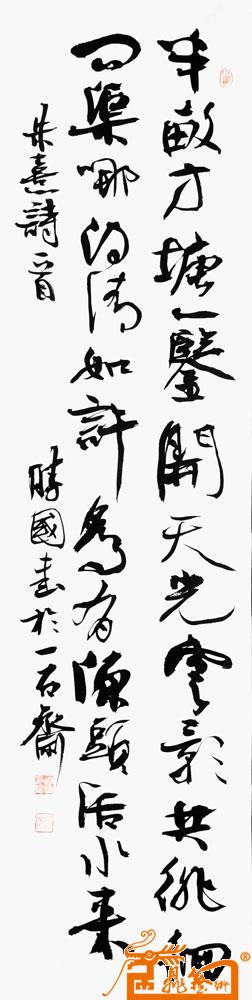 半畝方塘一鑒開天光雲影共徘徊
問渠哪得清如許為有源頭活水來
朱熹詩一首
勝國書於一石齋